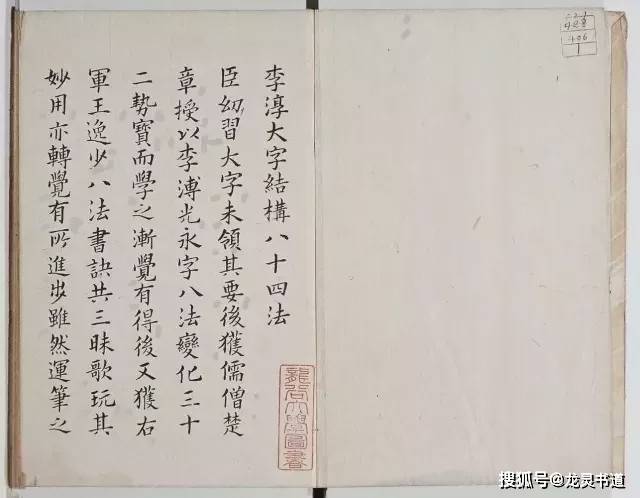 406
1
李淳大字結構八十四法
臣幼習大字未領其要後獲儒僧楚
章授以李溥光永字八法變化三十
二勢寶而學之漸覺有得後又獲右
軍王逸少八法書訣共三昧歌玩其
妙用亦轉覺有所進步雖然運筆之
龍谷大學圖書
搜狐号@龙灵书道